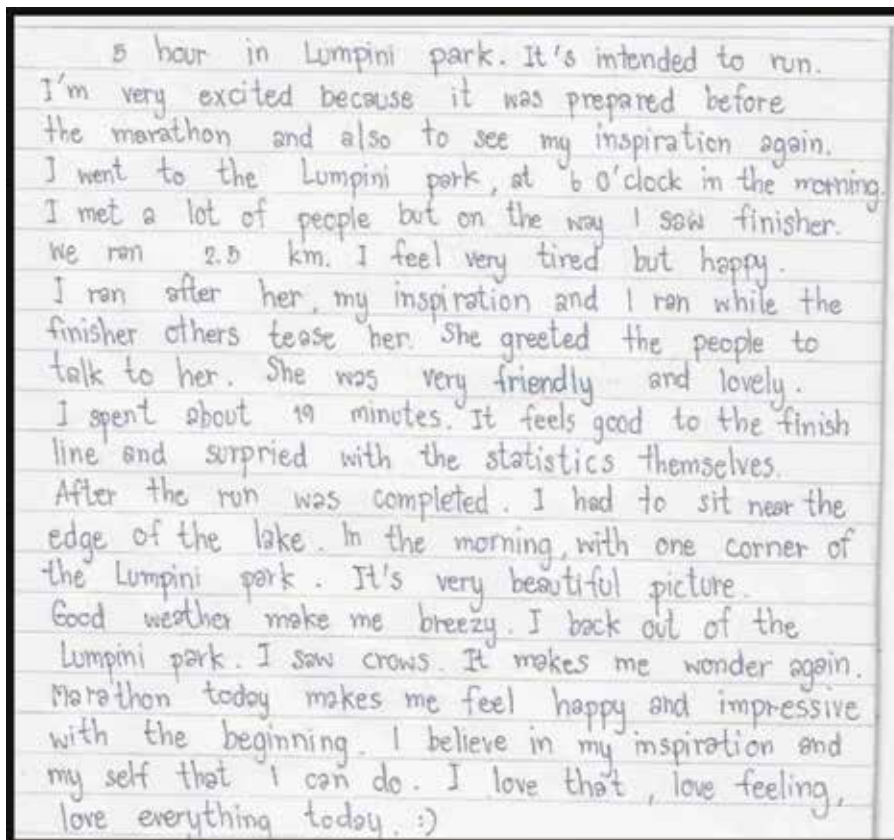 5 hour in Lumpini park. It's intended to run.
I'm very excited because it was prepared before
the marathon and also to see my inspiration again.
I went to the Lumpini park, at 6 O'clock in the morning.
I met a lot of people but on the way I saw finisher.
We ran 2.5 km. I feel very tired but happy.
I ran after her, my inspiration and I ran while the
finisher others tease her. She greeted the people to
talk to her. She was very friendly and lovely.
I spent about 19 minutes. It feels good to the finish
line and surpried with the statistics themselves.
After the run was completed. I had to sit near the
edge of the lake. In the morning, with one corner of
the Lumpini park. It's very beautiful picture.
Good weather make me breezy. I back out of the
Lumpini park. I saw crows. It makes me wonder again.
Marathon today makes me feel happy and impressive
with the beginning. I believe in my inspiration and
my self that I can do. I love that, love feeling,
love everything today. :)